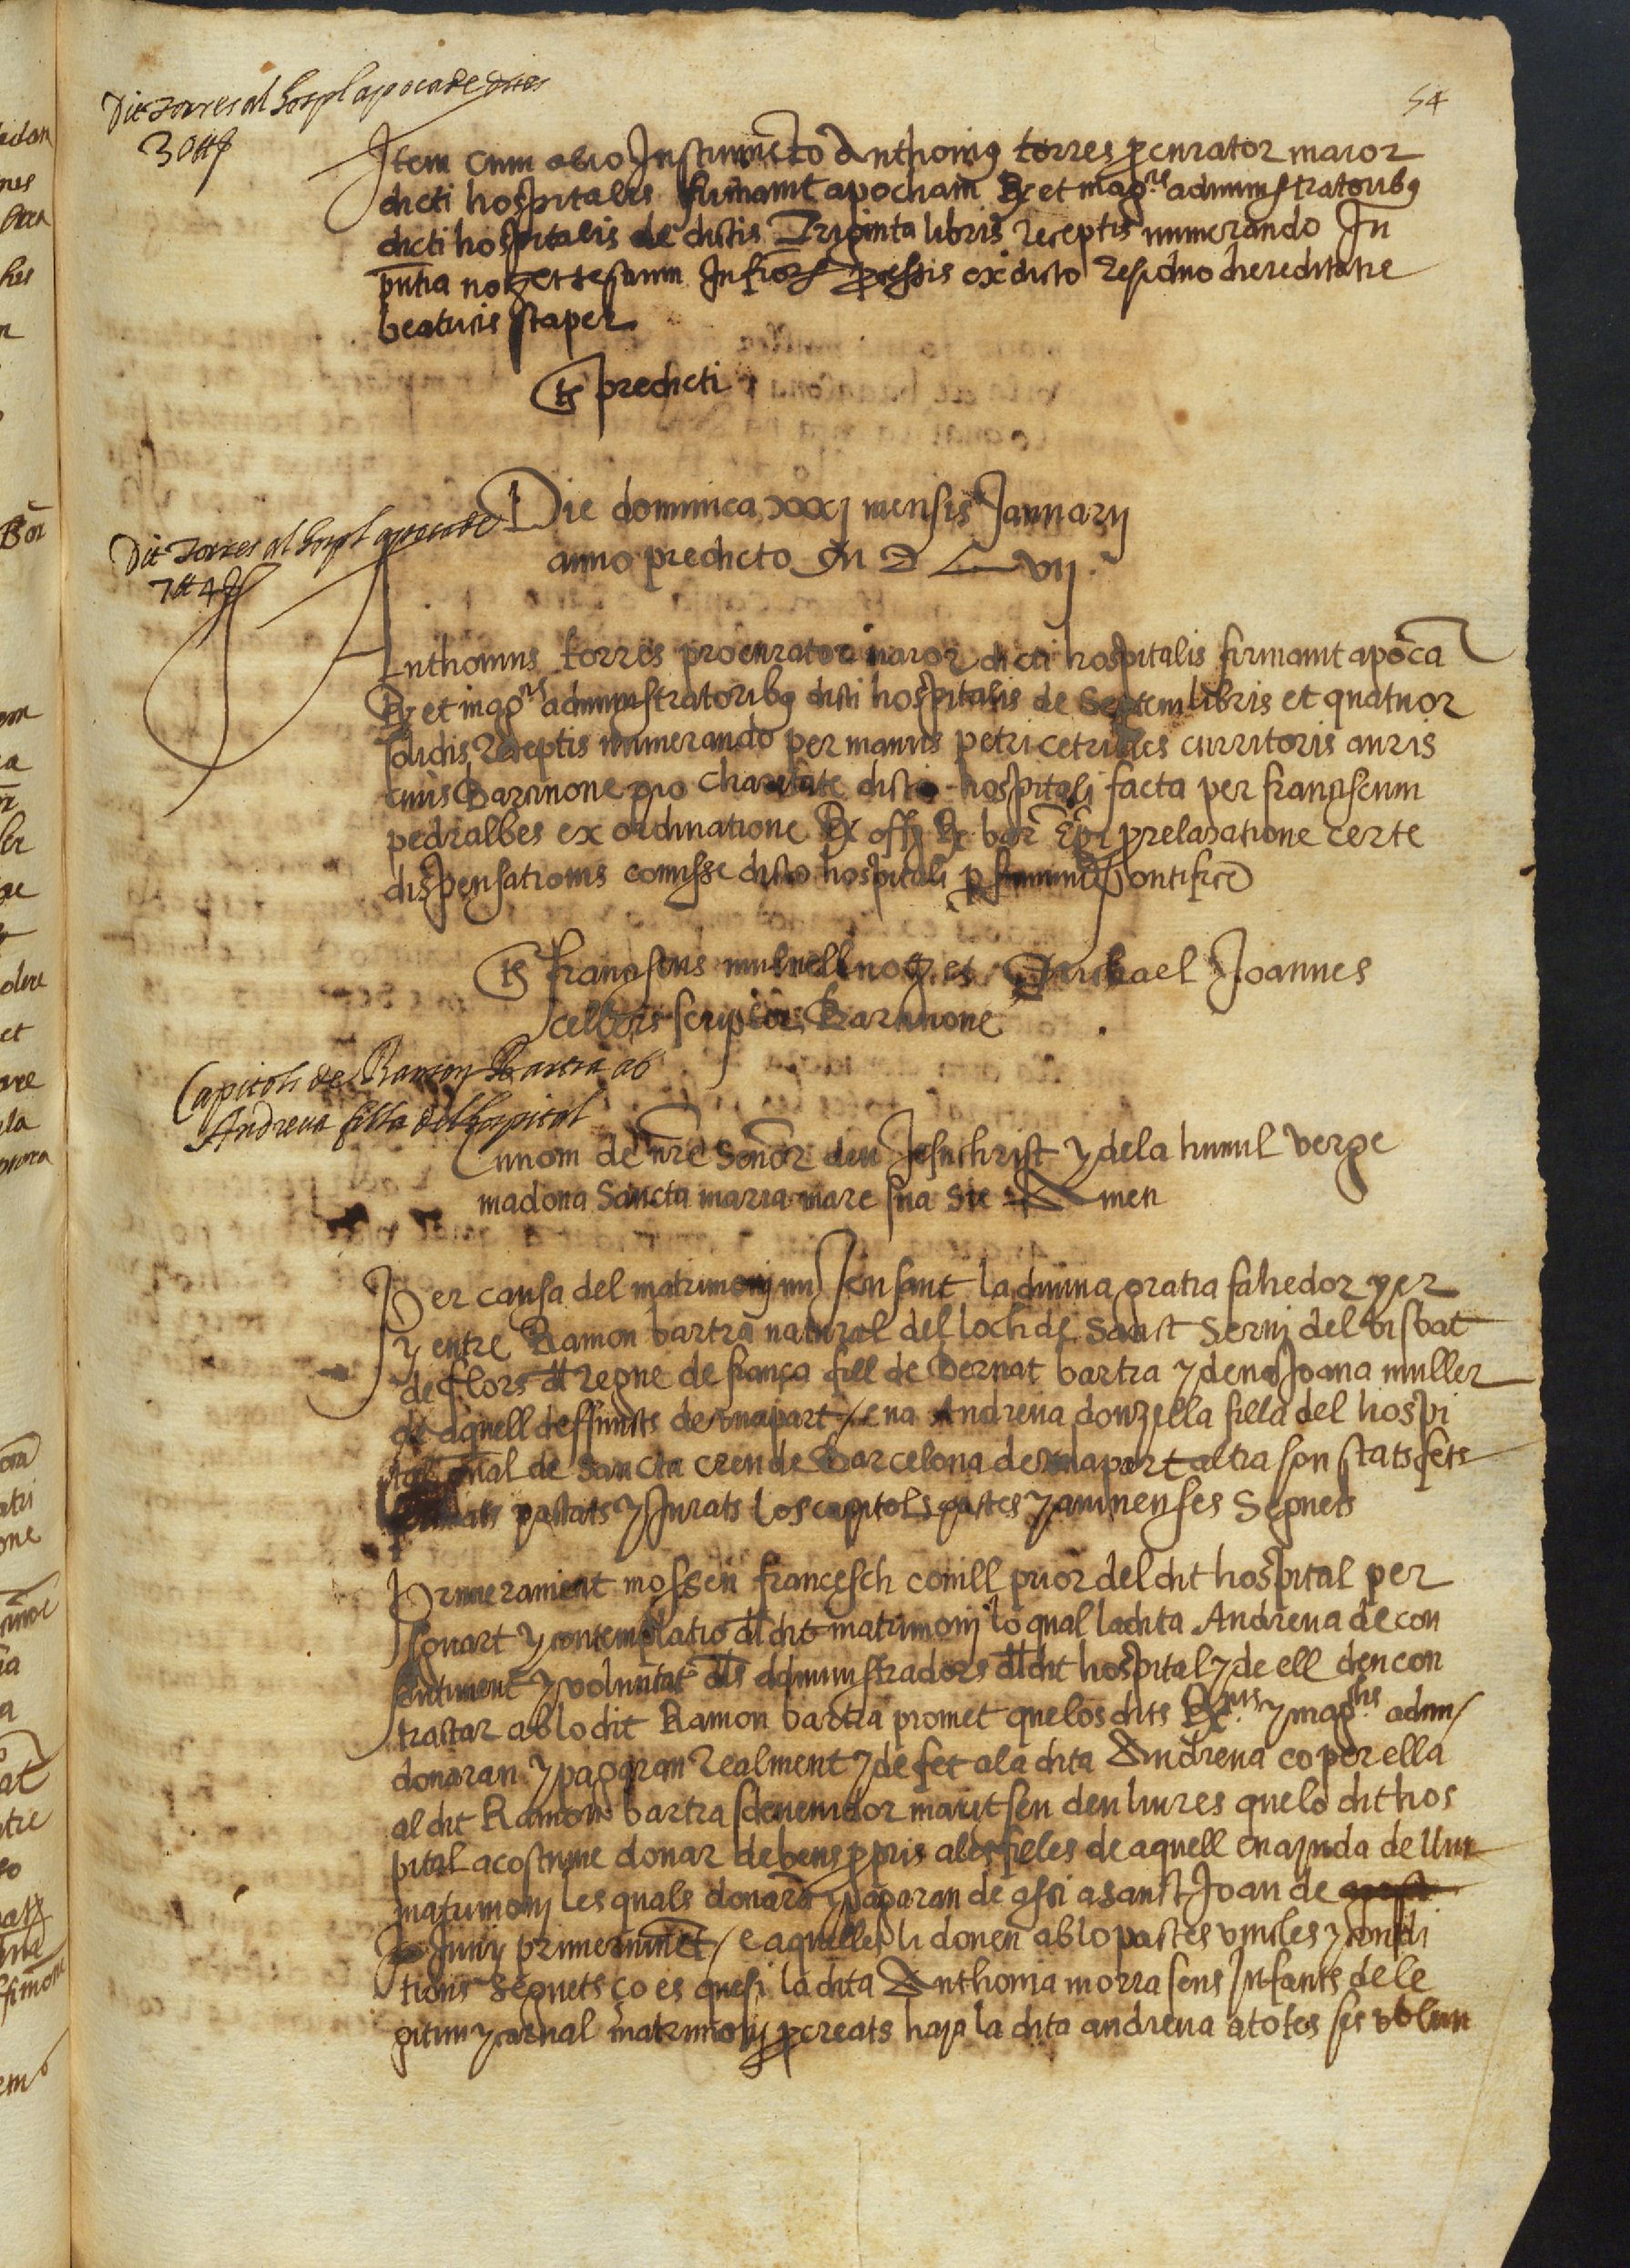 54
Dit Torres al hospl apoca de dites
30 ll ß
Item cum alio Instrumeto Anthonius torres procurator maior
dicti hospitalis firmavit apocham Rx et magcis administratoribus
dicti hospitalis de dictis Triginta libris receptis numerando In
pntia not et testium Infrors processis ex dicto residuo hereditatis
beatricis staper
ts predicti
Die dominica xxxj mensis Januarij
anno predicto M D L vij.
Dit Torres al hospl apoca de
7 ll 4 ß
Anthonius torres procurator maior dicti hospitalis firmavit apoca
Rx et magcis administratoribus dicti hospitalis de Septem libris et quatuor
solidis receptis numerando per manus petri cetrilles curritoris auris
civis Barcinone pro charitate dicto hospitali facta per franciscum
pedralbes ex ordinatione Rx offi Rx bar Epi pro relaxatione certe
dispensationis comisse dicto hospitali p summu Pontifice
ts franciscus mulnell not et Michael Joannes
cellers scriptor Barcinone
Capitols de Ramon Bartra ab
Andreva filla del hospital
En nom de nre Senor deu Jesuchrist y dela humil verge
madona Sancta maria mare sua sie Amen
Per causa del matrimonj mijensant la divina gratia fahedor per
y entre Ramon bartra natural del loch de Sanct Sernj del bisbat
de flors dl regne de frança fill de Bernat bartra y dena Joana muller
de aquell deffuncts de una part / e na Andreva donzella filla del hospi
tal gnal de Sancta creu de Barcelona de una part altra son stats fets
pactats y Jurats los capitols pactes y avinenses Seguets
Primerament mossen francesch conill prior del dit hospital per
sguart y contemplatio dl dit matrimonj lo qual la dita Andreva de con
sentiment y voluntat dls administradors dl dit hospital y de ell deu con
tractar ab lo dit Ramon bartra promet que los dits Rx y magchs adm/
donaran y pagaran realment y de fet ala dita Andreva co per ella
al dit Ramon bartra sdevenidor marit seu deu liures que lo dit hos
pital acostume donar de bens ppris ales filles de aquell en ajuda de llur
matrimonj les quals donara y pagaran de assi a sanct Joan de
Juny primervinet / e aquelles li donen ab lo pactes vincles y condi
tions Seguets ço es que si la dita Anthonia morra sens Infants de le
gitim y carnal matrimonj pcreats haja la dita andreva a totes ses volun